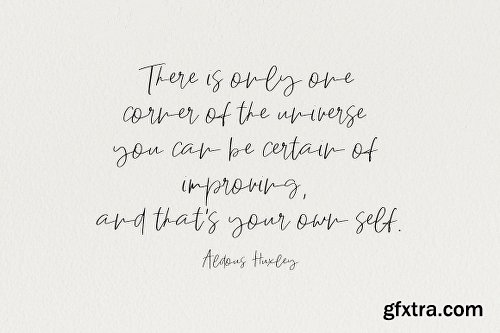 There is only one
corner of the universe
you can be certain of
improving,
and that's your own self.
Aldous Huxley
gfxtra.com